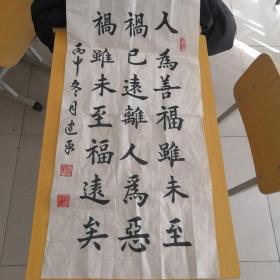 人為善福雖未至
禍已遠離人為惡
禍雖未至福遠矣
丙申冬月建泉